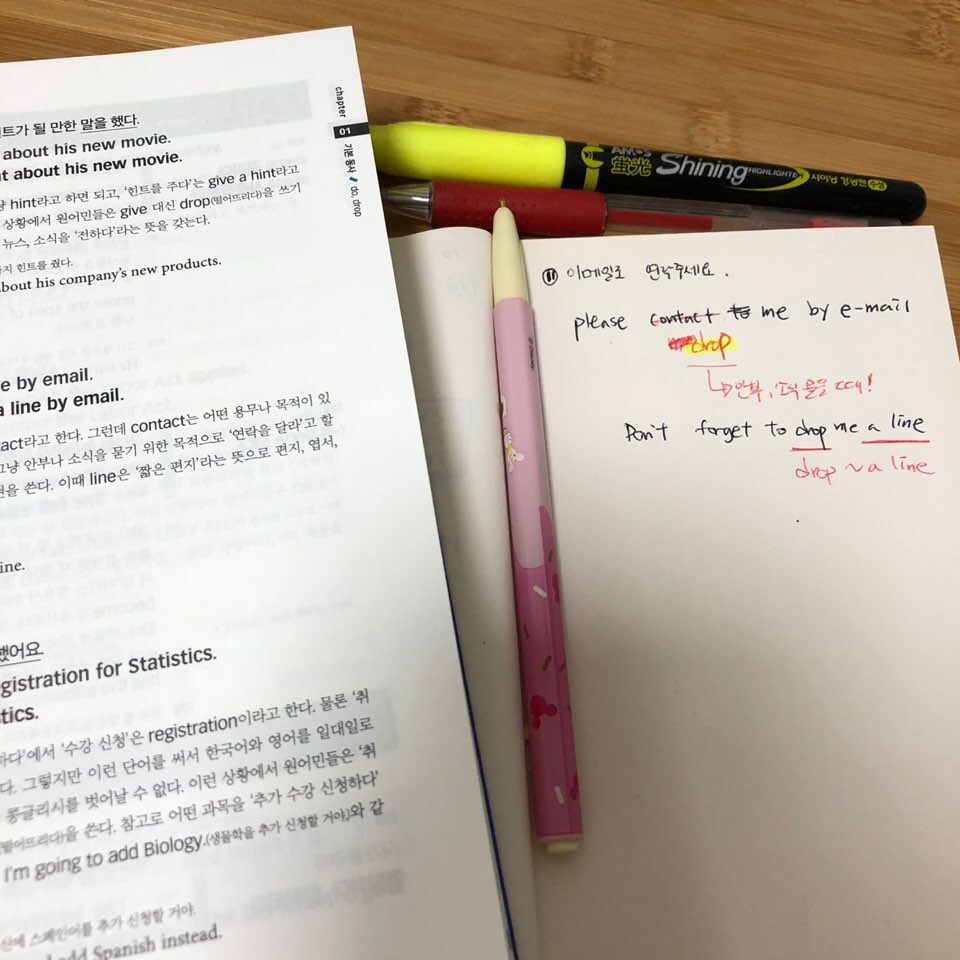 chapter
01
기본 동사
do, drop
힌트가 될 만한 말을 했다.
about his new movie.
t about his new movie.
hint라고 하면 되고, ‘힌트를 주다’는 give a hint라고
상황에서 원어민들은 give 대신 drop(떨어뜨리다)을 쓰기
뉴스, 소식을 ‘전하다’라는 뜻을 갖는다.
지 힌트를 줬다.
about his company’s new products.
e by email.
a line by email.
tact라고 한다. 그런데 contact는 어떤 용무나 목적이 있
그냥 안부나 소식을 묻기 위한 목적으로 ‘연락을 달라’고 할
현을 쓴다. 이때 line은 ‘짧은 편지’라는 뜻으로 편지, 엽서,
ine.
했어요.
gistration for Statistics.
tics.
하다’에서 ‘수강 신청’은 registration이라고 한다. 물론 ‘취
다. 그렇지만 이런 단어를 써서 한국어와 영어를 일대일로
콩글리시를 벗어날 수 없다. 이런 상황에서 원어민들은 ‘취
(떨어뜨리다)을 쓴다. 참고로 어떤 과목을 ‘추가 수강 신청하다’
I’m going to add Biology.(생물학을 추가 신청할 거야.)와 같
신에 스페인어를 추가 신청할 거야.
add Spanish instead.
AMOS
螢光 Shining HIGHLIGHTER 샤이닝 형광펜
© Disney
⑪ 이메일로 연락주세요.
please contact to me by e-mail
drop
↳안부, 소식 물을 때!
Don't forget to drop me a line
drop ~ a line